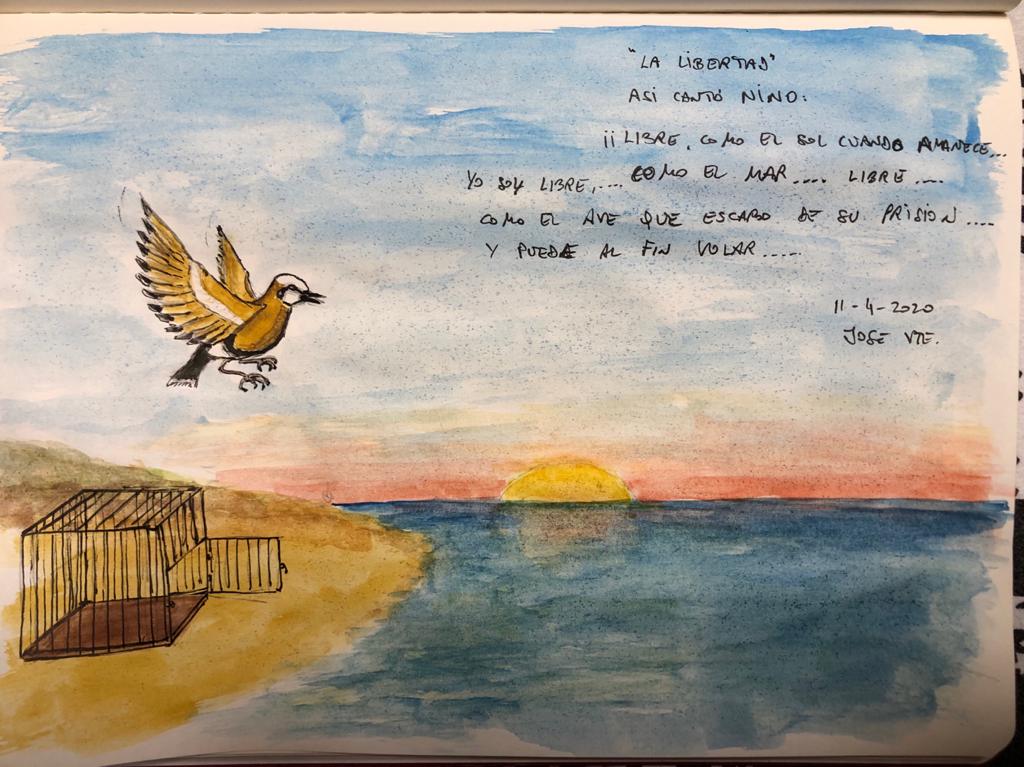 "LA LIBERTAD"
ASI CANTÓ NINO:
¡¡ LIBRE, COMO EL SOL CUANDO AMANECE...
YO SOY LIBRE,.... COMO EL MAR.... LIBRE....
COMO EL AVE QUE ESCAPO DE SU PRISION....
Y PUEDE AL FIN VOLAR.....
11-4-2020
JOSE VTE.